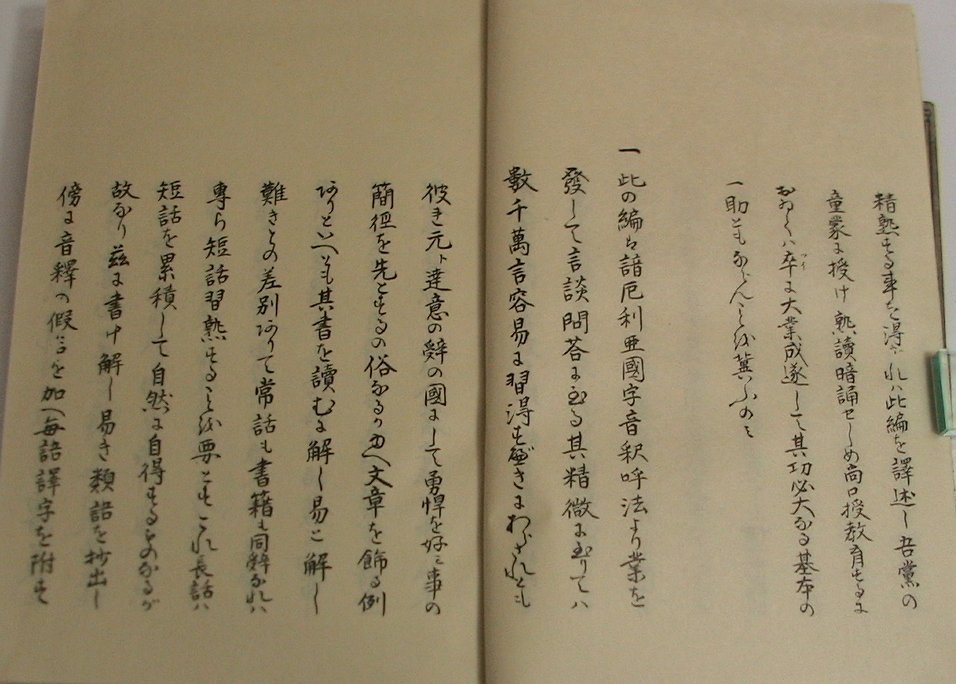 精熟する事を得されハ此編を譯述し吾黨の
童蒙に授け熟讀暗誦セしめ尚口授教育するに
おゐてハ卒に大業成遂して其功必大なる基本の
一助ともならんことを冀ふのミ
一此の編ハ諳厄利亜國字音釈呼法より業を
發して言談問答に至る其精微に至りてハ
數千萬言容易に習得すべきにわあらざれとも
彼き元ト達意の辭の國にして勇悍を好ミ事の
簡徑を先とするの俗なるゆへ文章を飾る例
ありといへとも其書を讀むに解し易と解し
難きとの差別ありて常話も書籍も同辭なれハ
專ら短話習熟することを要とすこれ長話ハ
短話を累積して自然に自得するものなるが
故なり茲に書け解し易き類語を抄出し
傍に音釋の假名を加へ毎語譯字を附す